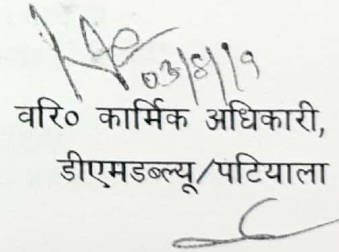 03/8/19
वरि० कार्मिक अधिकारी,
डीएमडब्ल्यू/पटियाला